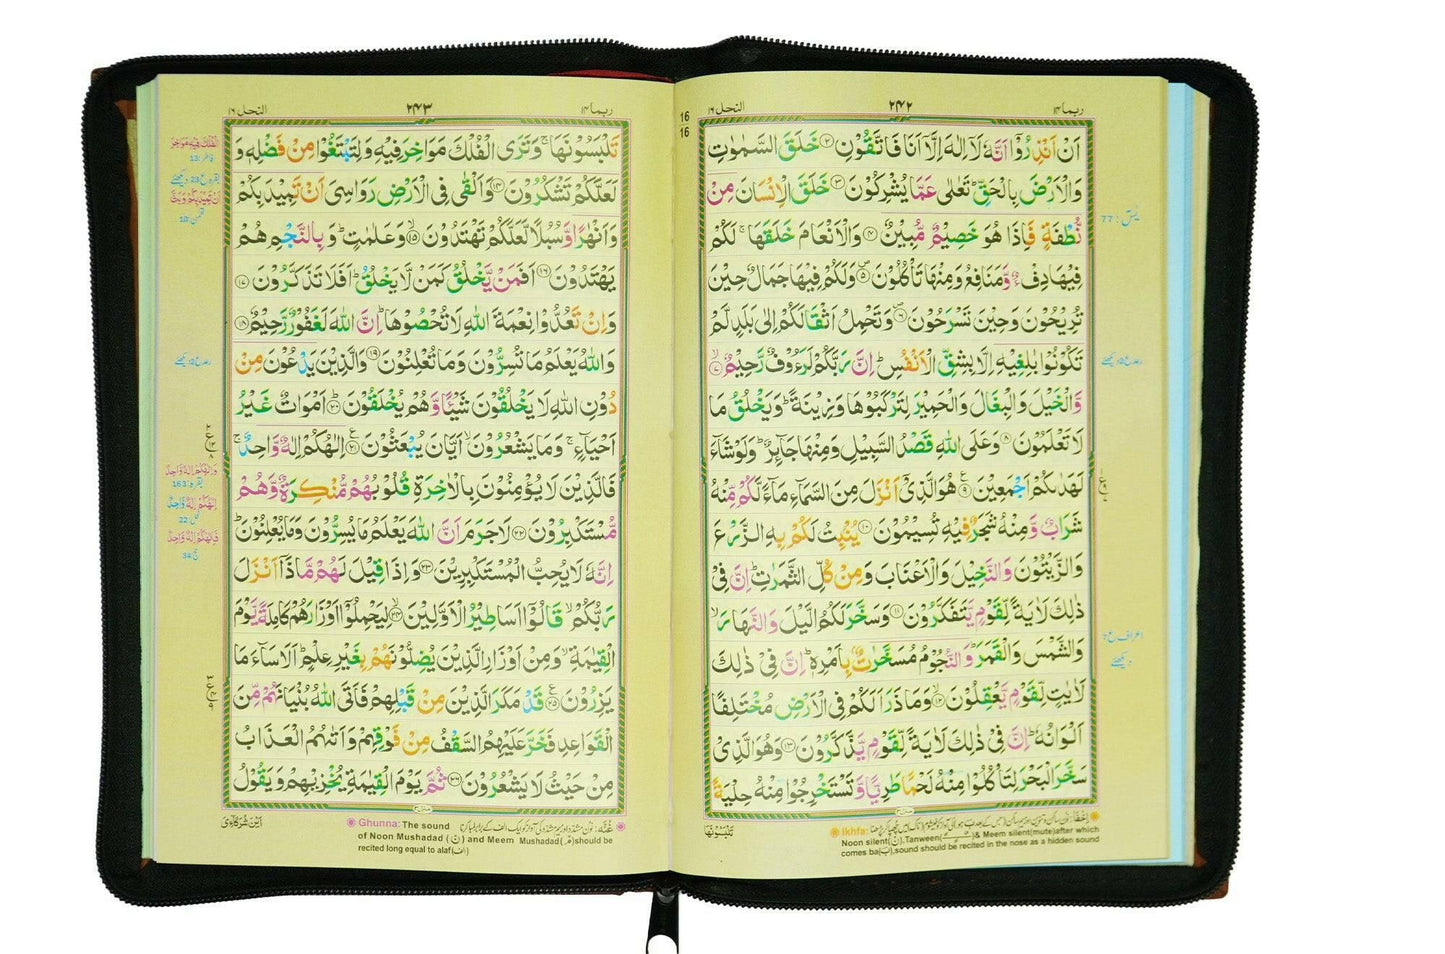 ربما ۱۴
۲۴۲
النحل ۱۶
16
16
اَنْ اَنْذِرُوْۤا اَنَّهٗ لَاۤ اِلٰهَ اِلَّاۤ اَنَا فَاتَّقُوْنِ ۝۲ خَلَقَ السَّمٰوٰتِ
وَالْاَرْضَ بِالْحَقِّ ؕ تَعٰلٰى عَمَّا يُشْرِكُوْنَ ۝۳ خَلَقَ الْاِنْسَانَ مِنْ
نُّطْفَةٍ فَاِذَا هُوَ خَصِيْمٌ مُّبِيْنٌ ۝۴ وَالْاَنْعَامَ خَلَقَهَا ۚ لَكُمْ
فِيْهَا دِفْءٌ وَّمَنَافِعُ وَمِنْهَا تَاْكُلُوْنَ ۝۵ وَلَكُمْ فِيْهَا جَمَالٌ حِيْنَ
تُرِيْحُوْنَ وَحِيْنَ تَسْرَحُوْنَ ۝۶ وَتَحْمِلُ اَثْقَالَكُمْ اِلٰى بَلَدٍ لَّمْ
تَكُوْنُوْا بٰلِغِيْهِ اِلَّا بِشِقِّ الْاَنْفُسِ ؕ اِنَّ رَبَّكُمْ لَرَءُوْفٌ رَّحِيْمٌ ۝۷
وَّالْخَيْلَ وَالْبِغَالَ وَالْحَمِيْرَ لِتَرْكَبُوْهَا وَزِيْنَةً ؕ وَيَخْلُقُ مَا
لَا تَعْلَمُوْنَ ۝۸ وَعَلَى اللّٰهِ قَصْدُ السَّبِيْلِ وَمِنْهَا جَآئِرٌ ؕ وَلَوْ شَآءَ
لَهَدٰىكُمْ اَجْمَعِيْنَ ۝۹ هُوَ الَّذِيْۤ اَنْزَلَ مِنَ السَّمَآءِ مَآءً لَّكُمْ مِّنْهُ
شَرَابٌ وَّمِنْهُ شَجَرٌ فِيْهِ تُسِيْمُوْنَ ۝۱۰ يُنْۢبِتُ لَكُمْ بِهِ الزَّرْعَ
وَالزَّيْتُوْنَ وَالنَّخِيْلَ وَالْاَعْنَابَ وَمِنْ كُلِّ الثَّمَرٰتِ ؕ اِنَّ فِيْ
ذٰلِكَ لَاٰيَةً لِّقَوْمٍ يَّتَفَكَّرُوْنَ ۝۱۱ وَسَخَّرَ لَكُمُ الَّيْلَ وَالنَّهَارَ ۙ
وَالشَّمْسَ وَالْقَمَرَ ؕ وَالنُّجُوْمُ مُسَخَّرٰتٌۢ بِاَمْرِهٖ ؕ اِنَّ فِيْ ذٰلِكَ
لَاٰيٰتٍ لِّقَوْمٍ يَّعْقِلُوْنَ ۝۱۲ وَمَا ذَرَاَ لَكُمْ فِي الْاَرْضِ مُخْتَلِفًا
اَلْوَانُهٗ ؕ اِنَّ فِيْ ذٰلِكَ لَاٰيَةً لِّقَوْمٍ يَّذَّكَّرُوْنَ ۝۱۳ وَهُوَ الَّذِيْ
سَخَّرَ الْبَحْرَ لِتَاْكُلُوْا مِنْهُ لَحْمًا طَرِيًّا وَّتَسْتَخْرِجُوْا مِنْهُ حِلْيَةً
تَلْبَسُوْنَهَا
يٰسٓ: 77
Ikhfa:
Noon silent(نْ),Tanween & Meem silent(mute)after which
comes ba(ب),sound should be recited in the nose as a hidden sound
ربما ۱۴
۲۴۳
النحل ۱۶
تَلْبَسُوْنَهَا ۚ وَتَرَى الْفُلْكَ مَوَاخِرَ فِيْهِ وَلِتَبْتَغُوْا مِنْ فَضْلِهٖ وَ
لَعَلَّكُمْ تَشْكُرُوْنَ ۝۱۴ وَاَلْقٰى فِي الْاَرْضِ رَوَاسِيَ اَنْ تَمِيْدَ بِكُمْ
وَاَنْهٰرًا وَّسُبُلًا لَّعَلَّكُمْ تَهْتَدُوْنَ ۝۱۵ وَعَلٰمٰتٍ ؕ وَبِالنَّجْمِ هُمْ
يَهْتَدُوْنَ ۝۱۶ اَفَمَنْ يَّخْلُقُ كَمَنْ لَّا يَخْلُقُ ؕ اَفَلَا تَذَكَّرُوْنَ ۝۱۷
وَاِنْ تَعُدُّوْا نِعْمَةَ اللّٰهِ لَا تُحْصُوْهَا ؕ اِنَّ اللّٰهَ لَغَفُوْرٌ رَّحِيْمٌ ۝۱۸
وَاللّٰهُ يَعْلَمُ مَا تُسِرُّوْنَ وَمَا تُعْلِنُوْنَ ۝۱۹ وَالَّذِيْنَ يَدْعُوْنَ مِنْ
دُوْنِ اللّٰهِ لَا يَخْلُقُوْنَ شَيْئًا وَّهُمْ يُخْلَقُوْنَ ؕ ۝۲۰ اَمْوَاتٌ غَيْرُ
اَحْيَآءٍ ۚ وَمَا يَشْعُرُوْنَ ۙ اَيَّانَ يُبْعَثُوْنَ ۝۲۱ اِلٰهُكُمْ اِلٰهٌ وَّاحِدٌ ۚ
فَالَّذِيْنَ لَا يُؤْمِنُوْنَ بِالْاٰخِرَةِ قُلُوْبُهُمْ مُّنْكِرَةٌ وَّهُمْ
مُّسْتَكْبِرُوْنَ ۝۲۲ لَا جَرَمَ اَنَّ اللّٰهَ يَعْلَمُ مَا يُسِرُّوْنَ وَمَا يُعْلِنُوْنَ ؕ
اِنَّهٗ لَا يُحِبُّ الْمُسْتَكْبِرِيْنَ ۝۲۳ وَاِذَا قِيْلَ لَهُمْ مَّاذَاۤ اَنْزَلَ
رَبُّكُمْ ۙ قَالُوْۤا اَسَاطِيْرُ الْاَوَّلِيْنَ ۝۲۴ لِيَحْمِلُوْۤا اَوْزَارَهُمْ كَامِلَةً يَّوْمَ
الْقِيٰمَةِ ۙ وَمِنْ اَوْزَارِ الَّذِيْنَ يُضِلُّوْنَهُمْ بِغَيْرِ عِلْمٍ ؕ اَلَا سَآءَ مَا
يَزِرُوْنَ ۝۲۵ قَدْ مَكَرَ الَّذِيْنَ مِنْ قَبْلِهِمْ فَاَتَى اللّٰهُ بُنْيَانَهُمْ مِّنَ
الْقَوَاعِدِ فَخَرَّ عَلَيْهِمُ السَّقْفُ مِنْ فَوْقِهِمْ وَاَتٰىهُمُ الْعَذَابُ
مِنْ حَيْثُ لَا يَشْعُرُوْنَ ۝۲۶ ثُمَّ يَوْمَ الْقِيٰمَةِ يُخْزِيْهِمْ وَيَقُوْلُ
اَيْنَ شُرَكَآءِيَ
وَاِلٰهُكُمْ اِلٰهٌ وَّاحِدٌ
بقره: 163
اِلٰهُكُمْ اِلٰهٌ وَّاحِدٌ
نحل: 22
فَاِلٰهُكُمْ اِلٰهٌ وَّاحِدٌ
حج: 34
Ghunna: The sound
of Noon Mushadad (نّ) and Meem Mushadad(مّ)should be
recited long equal to alaf(الف)